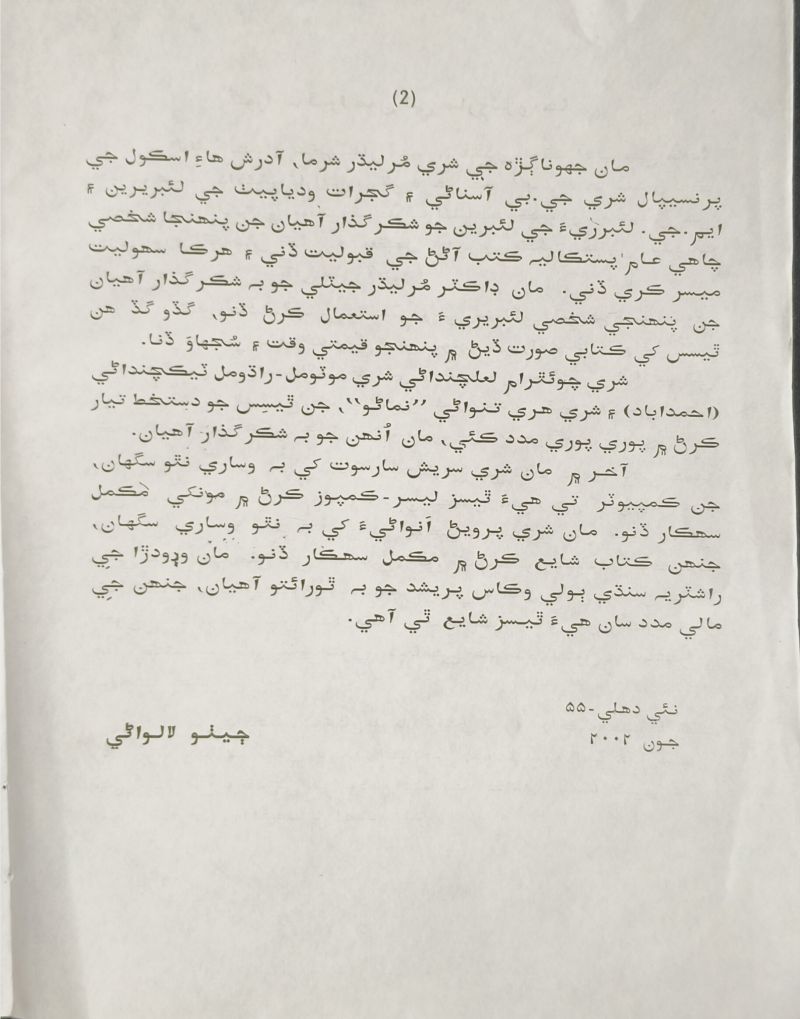 (2)
مان جهوناڳڙه جي شري مُرليڌر شرما، آدرش هاءِ اسڪول جي
پرنسيپال شري جي.بي آسناڻي ۽ گجرات وديا پيٺ جي لئبريرين ۽
ايم.جي. لئبرريءَ جي لئبرين جو شڪر گذار آهيان جن پنهنجا شخصي
چاهي عام پستڪاليه ڪتب آڻڻ جي قبوليت ڏني ۽ هرڪا سهوليت
ميسر ڪري ڏني. مان ڊاڪٽر مُرليڌر جيٽلي جو بہ شڪر گذار آهيان
جن پنهنجي شخصي لئبريري ءَ جو استعمال ڪرڻ ڏنو، گڏو گڏ هن
ٿيسس کي ڪتابي صورت ڏيڻ ۾ پنهنجو قيمتي وقت ۽ سُجهاوَ ڏنا.
شري چوئٿرام لعلچنداڻي شري موٽومل-راڌومل ٽيڪچنداڻي
(احمدآباد) ۽ شري هري تنواڻي ”نماڻو“، جن ٿيسس جو دستخط تيار
ڪرڻ ۾ پوري پوري مدد ڪئي، مان اُنهن جو بہ شڪر گذار آهيان.
آخر ۾ مان شري سريش سارسوت کي بہ وساري نٿو سگهان،
جن ڪمپيوٽر تي هيءَ ٿيسز ليسر-ڪمپوز ڪرڻ ۾ مونکي مُڪمل
سهڪار ڏنو. مان شري پروين آنواڻيءَ کي بہ نٿو وساري سگهان،
جنهن ڪتاب شايع ڪرڻ ۾ مڪمل سهڪار ڏنو. مان وڙودڙا جي
راشٽريہ سنڌي ٻولي وڪاس پريشد جو بہ ٿورائتو آهيان، جنهن جي
مالي مدد سان هيءَ ٿيسز شايع ٿي آهي.
نئي دهلي-۵۵
جون ۲۰۰۲
جيٺو لالواڻي